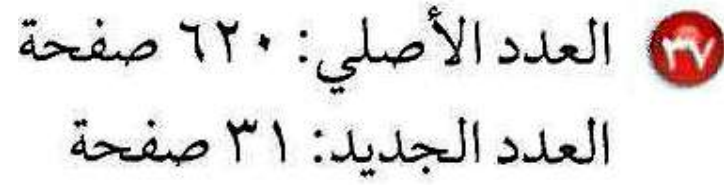 ٣٧ العدد الأصلي: ٦٢٠ صفحة
العدد الجديد: ٣١ صفحة